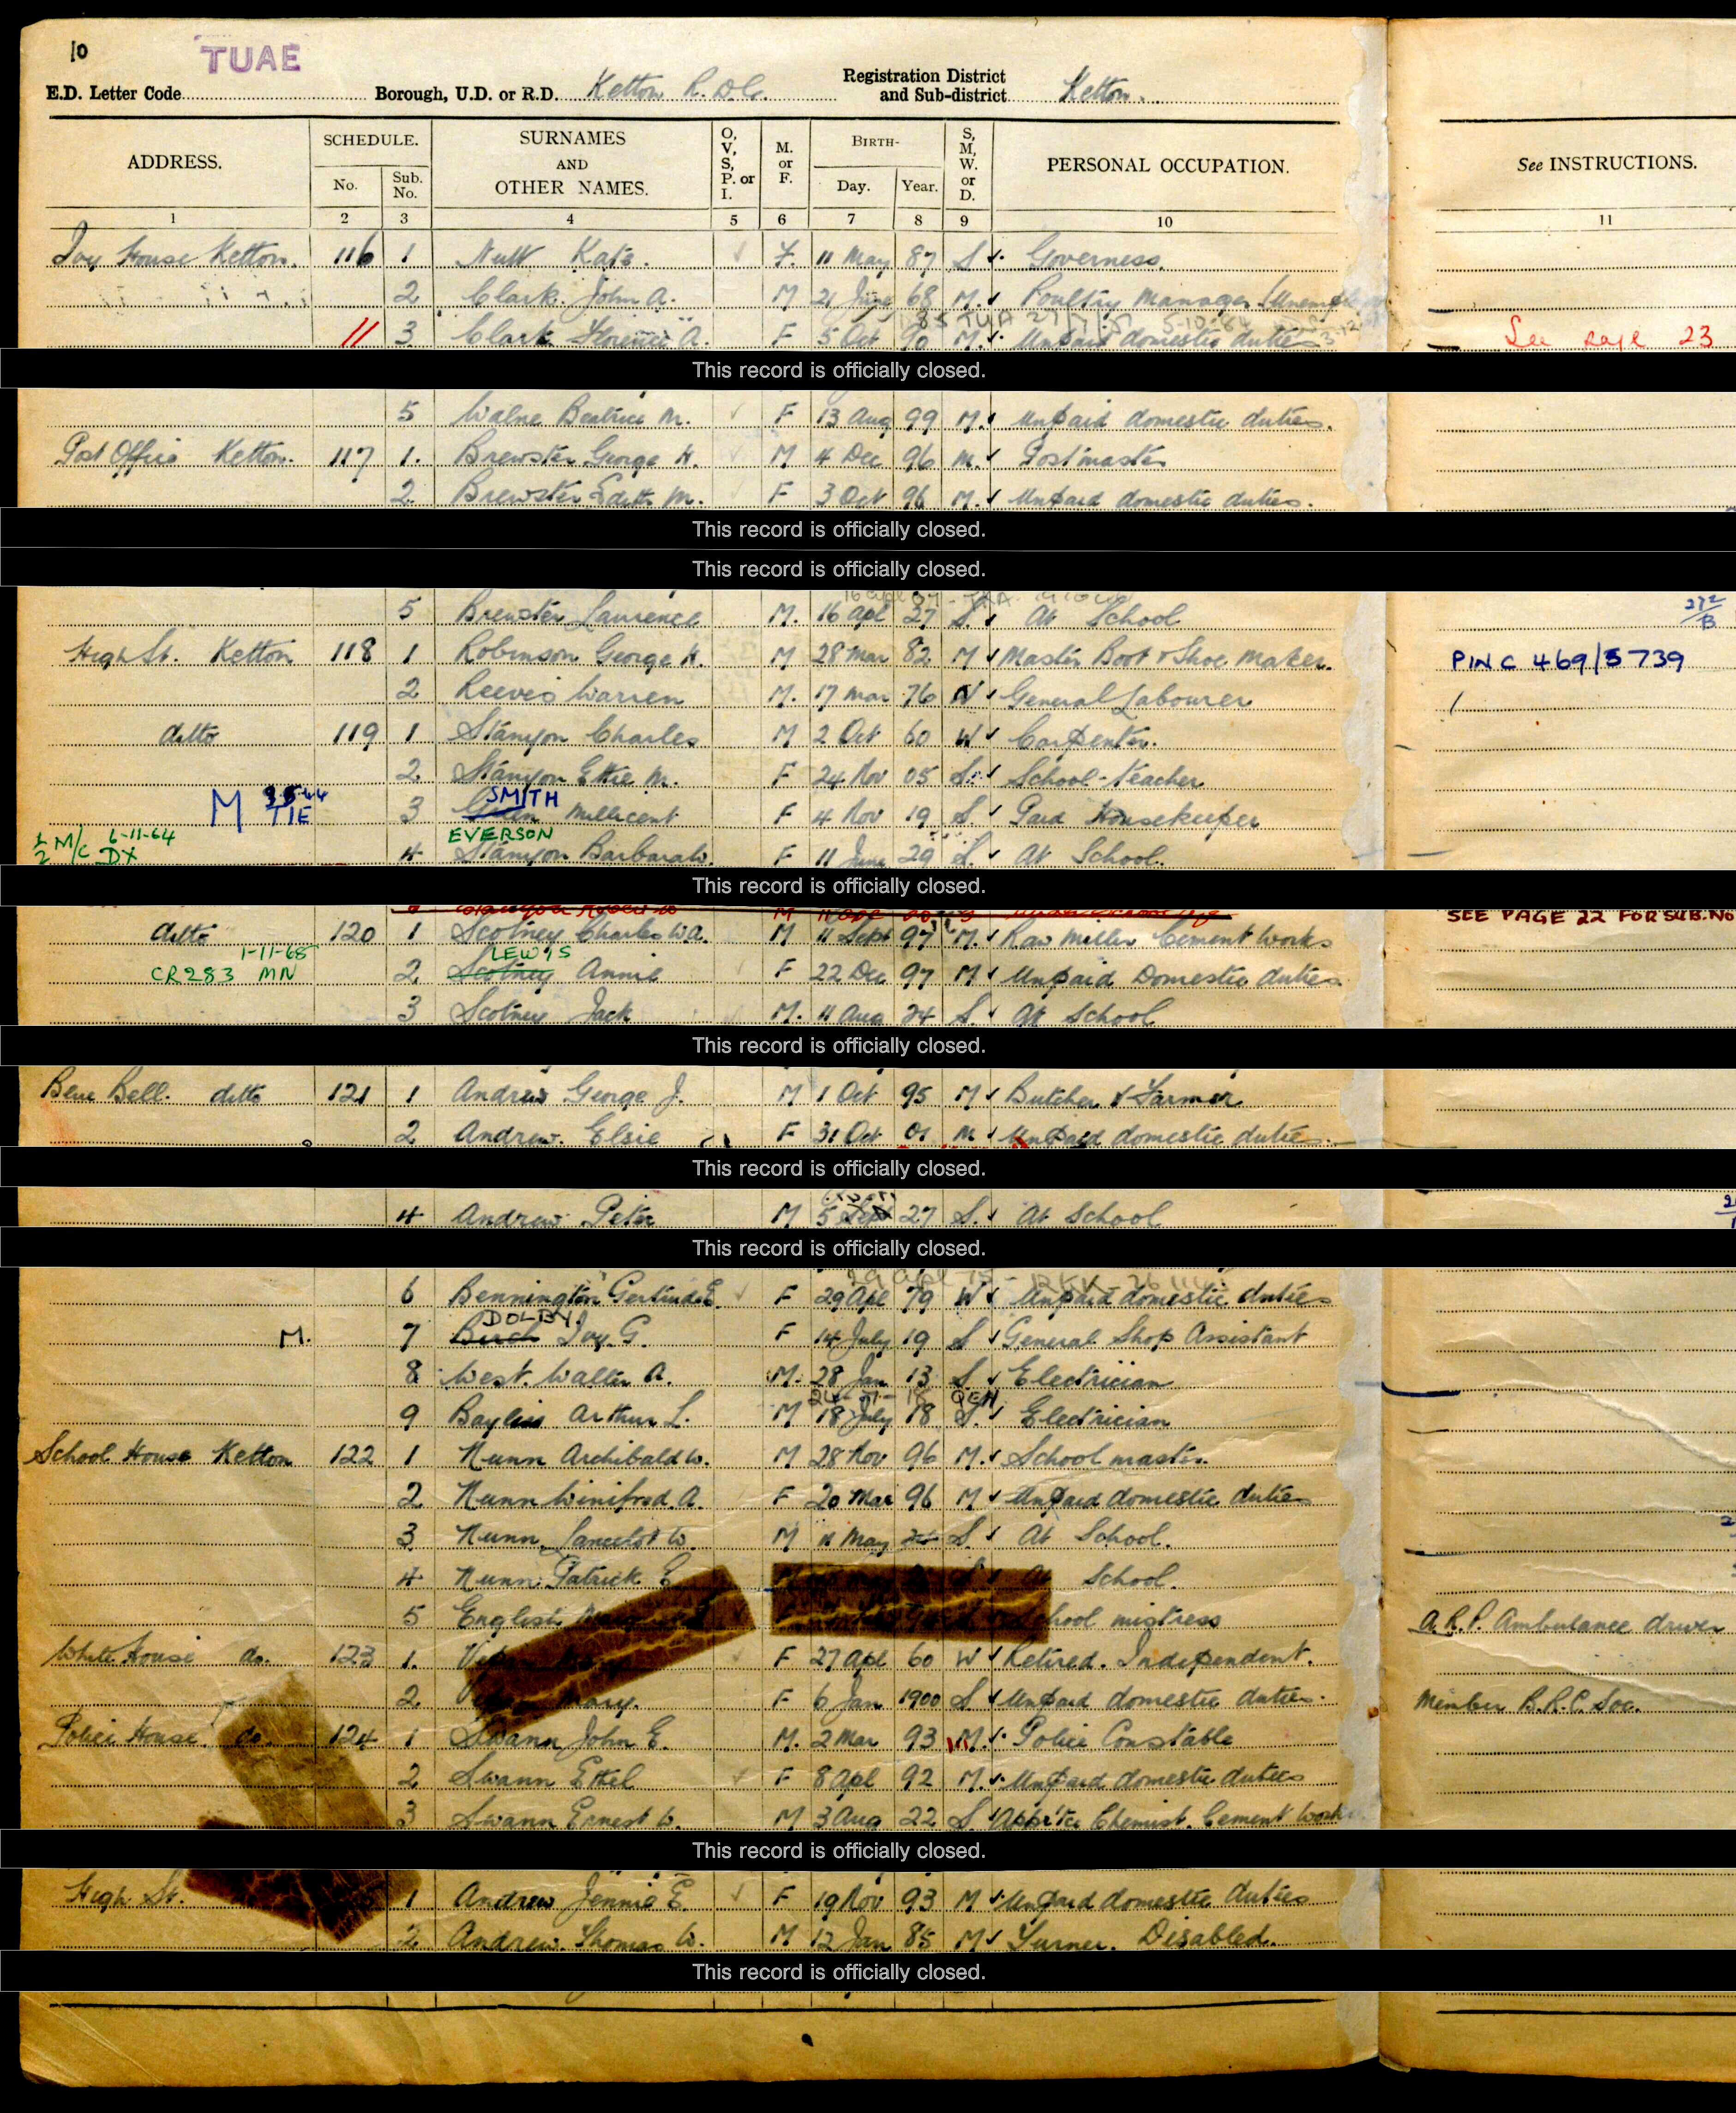 10
TUAE
E.D. Letter Code Borough, U.D. or R.D. Ketton R.D.C. Registration District and Sub-district Ketton.
ADDRESS. SCHEDULE. No. Sub. No. SURNAMES AND OTHER NAMES. O, V, S, P. or I. M. or F. BIRTH- Day. Year. S, M, W. or D. PERSONAL OCCUPATION. See INSTRUCTIONS.
1 2 3 4 5 6 7 8 9 10 11
House Ketton. 116 1 Nutt Kate. F. 11 May 87 S Governess.
2 Clark. John A. M 21 June 68 M. Poultry Manager
11 3 Clark Florence A. F 5 Oct 90 M. Unpaid domestic duties See page 23
This record is officially closed.
5 Walne Beatrice M. F 13 Aug 99 M. Unpaid domestic duties.
Post Office Ketton. 117 1. Brewster George H. M 4 Dec 96 M. Postmaster
2. Brewster Edith M. F 3 Oct 96 M. Unpaid domestic duties.
This record is officially closed.
This record is officially closed.
5 Brewster Laurence M. 16 Apl 27 S. At School 272/B
High St. Ketton 118 1 Robinson George H. M 28 Mar 82 M Master Boot & Shoe Maker. PINC 469/5739
2 Reeves Warren M. 17 Mar 76 General Labourer
ditto 119 1 Stanyon Charles M 2 Oct 60 W Carpenter.
2. Stanyon Ettie M. F 24 Nov 05 S. School-teacher
SMITH
M TIE 3 Green Millicent F 4 Nov 19 S. Paid Housekeeper
1/2 M/C 6-11-64 DX EVERSON
4 Stanyon Barbara W. F 11 June 29 S. At School.
This record is officially closed.
SEE PAGE 22 FOR SUB. NO
ditto 120 1 Scotney Charles W.A. M 11 Sept 97 M. Raw Miller Cement Works
1-11-65 LEWIS
CR283 MN 2. Scotney Annie F 22 Dec 97 M Unpaid Domestic duties
3 Scotney Jack M. 11 Aug 24 S. At School
This record is officially closed.
Blue Bell. ditto 121 1 Andrew George J. M 1 Oct 95 M Butcher & Farmer
2 Andrew. Elsie F 31 Oct 01 M Unpaid domestic duties.
This record is officially closed.
4 Andrew Peter M 5 Sept 27 S. At School
This record is officially closed.
6 Bennington Gertrude E. F 29 Apl 79 W Unpaid domestic duties
DOLBY
M. 7 Birch Ivy G. F 14 July 19 S General Shop Assistant
8 West. Walter A. M. 28 Jan 13 S. Electrician
QEH
9 Bayliss Arthur L. M 18 July 18 S. Electrician
School House Ketton 122 1 Nunn Archibald W. M 28 Nov 96 M. School master.
2 Nunn Winifred A. F 20 Mar 96 M Unpaid domestic duties
3 Nunn. Lancelot W. M 11 May S. At School.
4 Nunn Patrick E At School.
5 English School mistress A.R.P. Ambulance driver
White House do. 123 1. F 27 Apl 60 W Retired. Independent.
2. Mary. F 6 Jan 1900 S. Unpaid domestic duties. Member B.R.C. Soc.
Police House. do. 124 1 Swann John E. M. 2 Mar 93 M. Police Constable
2 Swann Ethel F 8 Apl 92 M. Unpaid domestic duties
3 Swann Ernest W. M 3 Aug 22 S. App'tce Chemist. Cement Work
This record is officially closed.
High St. 1 Andrew Jennie E. F 19 Nov 93 M Unpaid domestic duties
2 Andrew. Thomas W. M 12 Jan 85 M Turner. Disabled.
This record is officially closed.